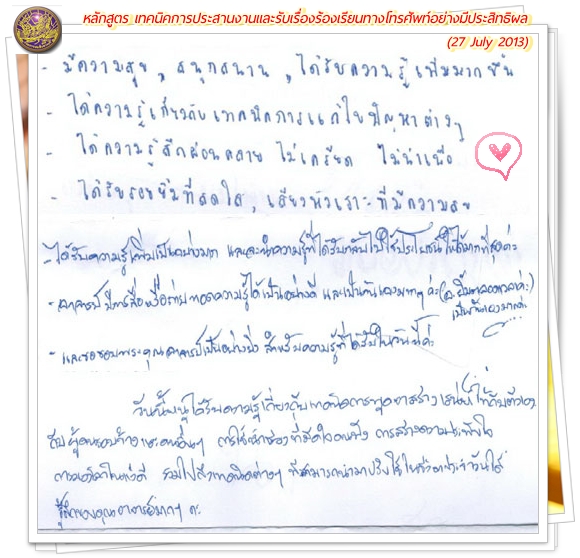 หลักสูตร เทคนิคการประสานงานและรับเรื่องร้องเรียนทางโทรศัพท์อย่างมีประสิทธิผล
(27 July 2013)
- มีความสุข , สนุกสนาน , ได้รับความรู้เพิ่มมากขึ้น
- ได้ความรู้เกี่ยวกับเทคนิคการแก้ไขปัญหาต่างๆ
- ได้ความรู้สึกผ่อนคลาย ไม่เครียด ไม่น่าเบื่อ
- ได้รับรอยยิ้มที่สดใส, เสียงหัวเราะที่มีความสุข
- ได้รับความรู้เพิ่มเป็นอย่างมาก และจะนำความรู้ที่ได้รับกลับไปใช้ประโยชน์ให้ได้มากที่สุดค่ะ
- อาจารย์ มีการสื่อหรือถ่ายทอดความรู้ได้เป็นอย่างดี และเป็นกันเองมากๆ ค่ะ
เป็นกันเองมากค่ะ
- และขอขอบพระคุณอาจารย์เป็นอย่างยิ่ง สำหรับความรู้ที่ได้รับในวันนี้ค่ะ
วันนี้หนูได้รับความรู้เกี่ยวกับเทคนิคการพูด การสร้างเสน่ห์ให้กับตัวเอง
กับผู้คนรอบข้างและคนอื่นๆ การสร้างความประทับใจ
รวมไปถึงเทคนิคต่างๆ ที่สามารถนำมาปรับใช้ในชีวิตประจำวันได้
รู้สึกขอบคุณอาจารย์มากๆ ค่ะ